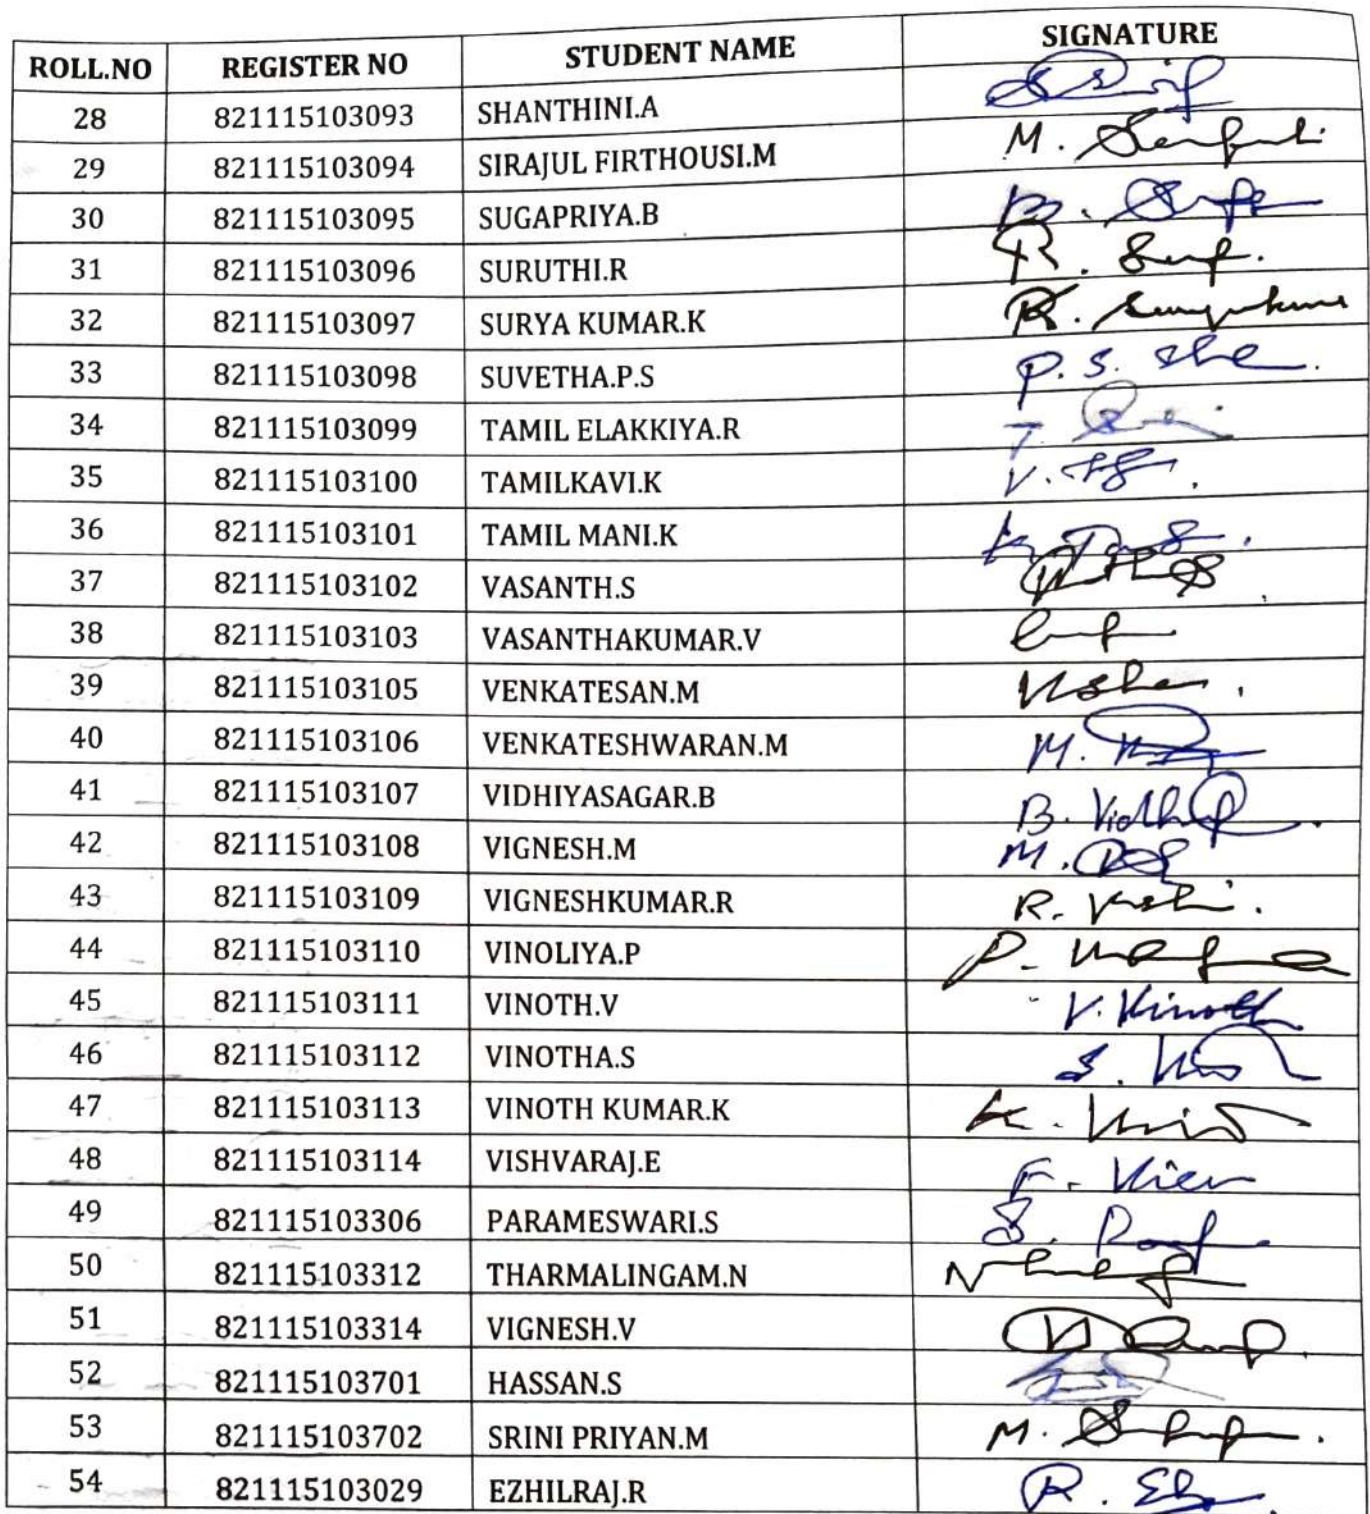 ROLL.NO REGISTER NO STUDENT NAME SIGNATURE
28 821115103093 SHANTHINI.A
29 821115103094 SIRAJUL FIRTHOUSI.M M.
30 821115103095 SUGAPRIYA.B B.
31 821115103096 SURUTHI.R R.
32 821115103097 SURYA KUMAR.K K.
33 821115103098 SUVETHA.P.S P. S.
34 821115103099 TAMIL ELAKKIYA.R T.
35 821115103100 TAMILKAVI.K V.
36 821115103101 TAMIL MANI.K
37 821115103102 VASANTH.S
38 821115103103 VASANTHAKUMAR.V
39 821115103105 VENKATESAN.M
40 821115103106 VENKATESHWARAN.M M.
41 821115103107 VIDHIYASAGAR.B B.
42 821115103108 VIGNESH.M M.
43 821115103109 VIGNESHKUMAR.R R.
44 821115103110 VINOLIYA.P P.
45 821115103111 VINOTH.V V. Vinoth
46 821115103112 VINOTHA.S S.
47 821115103113 VINOTH KUMAR.K K.
48 821115103114 VISHVARAJ.E
49 821115103306 PARAMESWARI.S S.
50 821115103312 THARMALINGAM.N N
51 821115103314 VIGNESH.V
52 821115103701 HASSAN.S
53 821115103702 SRINI PRIYAN.M M.
54 821115103029 EZHILRAJ.R R.